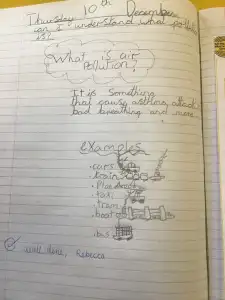 Thursday 10th December
can I understand what pollution
is?
What is air
Pollution?
It is something
that cause asthma attack
bad breathing and more.
Examples
.cars
.train
.taxi
.tram
.boat
.bus
well done, Rebecca